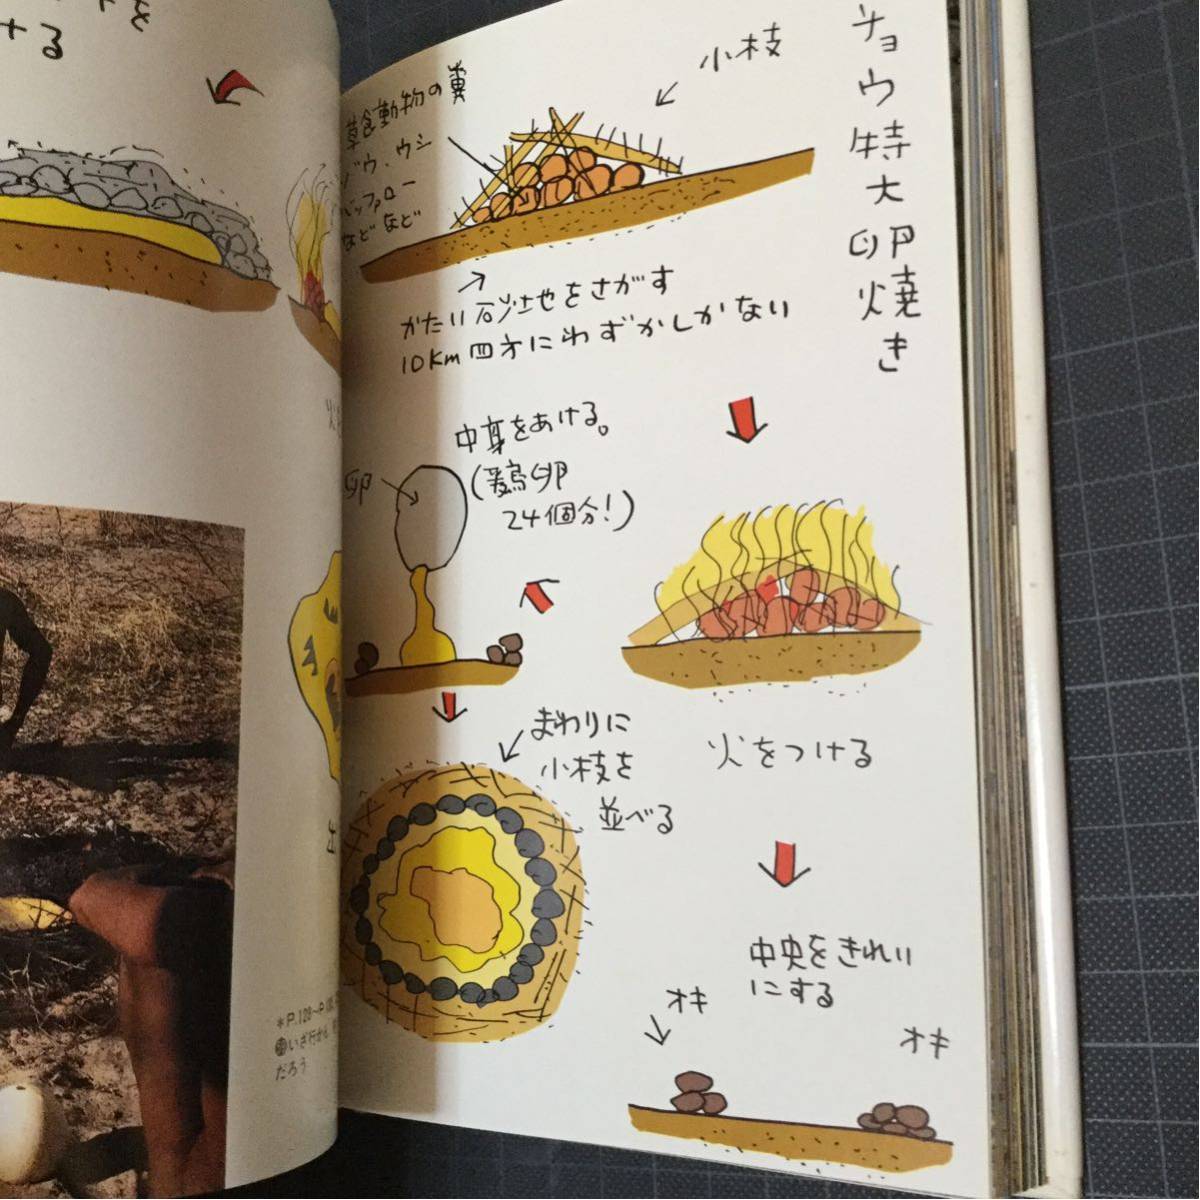 ける
チョウ特大卵焼き
小枝
草食動物の糞
ゾウ、ウシ
バッファロー
などなど
かたい砂地をさがす
10Km四方にわずかしかない
中身をあける。
(鶏卵
24個分!)
卵
火をつける
まわりに
小枝を
並べる
中央をきれい
にする
オキ
オキ
*P.128~P
いざ行かん
だろう